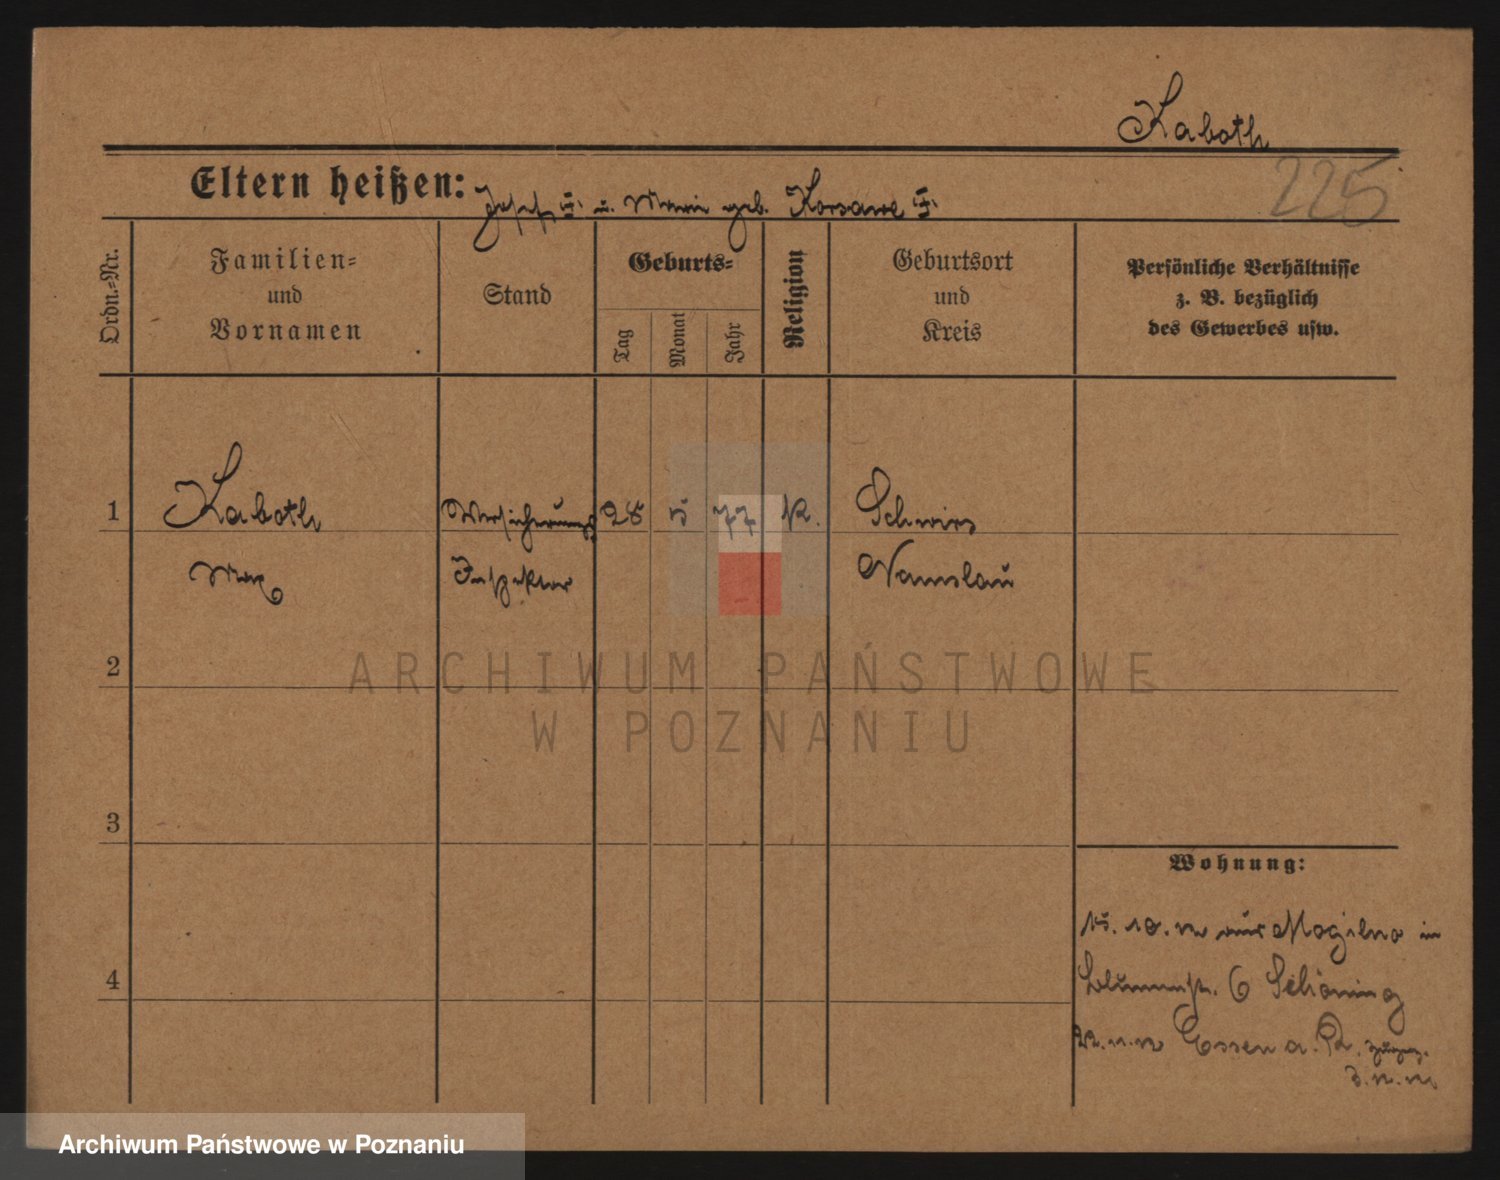 Kaboth
Eltern heißen: Josef † u. Marie geb. Korsawe †
225
Ordn.-Nr.
Familien- und Vornamen
Stand
Geburts-
Tag
Monat
Jahr
Religion
Geburtsort und Kreis
Persönliche Verhältnisse
z. B. bezüglich
des Gewerbes usw.
1
Kaboth
Versicherungs
28 5 77 K.
Schwirz
Max
Inspektor
Namslau
ARCHIWUM PAŃSTWOWE
W POZNANIU
2
3
4
Wohnung:
15. 10. aus Mogilno in
Blumenstr. 6 Schöning
Essen a. R.
Archiwum Państwowe w Poznaniu